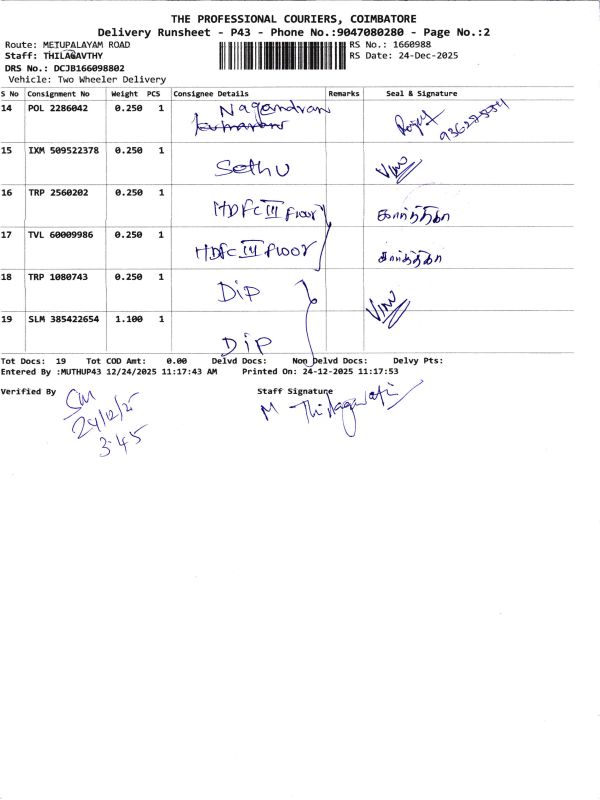 THE PROFESSIONAL COURIERS, COIMBATORE
Delivery Runsheet - P43 - Phone No.:9047080280 - Page No.:2
Route: METUPALAYAM ROAD RS No.: 1660988
Staff: THILAGAVTHY RS Date: 24-Dec-2025
DRS No.: DCJB166098802
Vehicle: Two Wheeler Delivery
S No Consignment No Weight PCS Consignee Details Remarks Seal & Signature
14 POL 2286042 0.250 1 Nagendran
15 IXM 509522378 0.250 1 Sethu Vino
16 TRP 2560202 0.250 1 HDFC III Floor கார்த்திகா
17 TVL 60009986 0.250 1 HDFC III Floor கார்த்திகா
18 TRP 1080743 0.250 1 DiP Vino
19 SLM 385422654 1.100 1 DiP
Tot Docs: 19 Tot COD Amt: 0.00 Delvd Docs: Non Delvd Docs: Delvy Pts:
Entered By :MUTHUP43 12/24/2025 11:17:43 AM Printed On: 24-12-2025 11:17:53
Verified By Staff Signature
24/12/25 M Thilagavathi
3:45